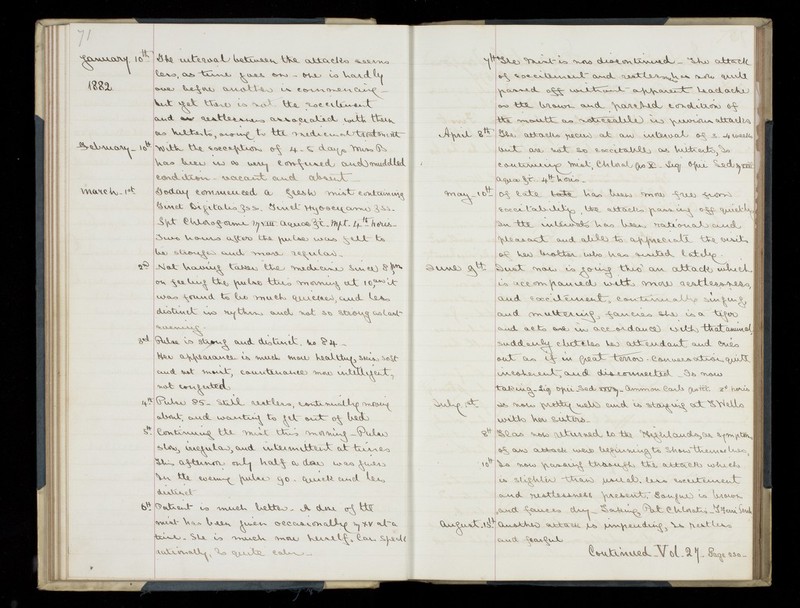 71
January 10th The interval between the attacks seems
1882 less, as time goes on - one is hardly
over before another is commencing -
but yet there is not the excitement
and restlessness associated with them
as hitherto, owing to the medicinal treatment
February - 10th With the exception of 4-5 days Miss B
has been in a very confused and muddled
condition - vacant and absent
March - 1st Today commenced a fresh mist containing
Tinct Digitalis ʒss. Tinct Hyoscyami ʒss.
Spt Chloroformi aquae ℥i. 4th horis.
Two hours after the pulse was felt to
be stronger and more regular.
2nd Not having taken the medicine since 8 pm
on feeling the pulse this morning at 10 am it
was found to be much quicker, and less
distinct in rythm and not so strong as last
evening -
3rd Pulse is strong and distinct, no 84 -
Her appearance is much more healthy, skin soft
and not moist, countenance more intelligent,
not congested.
4th Pulse 85 - Still restless, continually moving
about, and wanting to get out of bed
5th Continuing the mist this morning - Pulse
slow, irregular, and intermittent at times
This afternoon only half a dose was given
In the evening pulse 90. quick and less
distinct
6th Patient is much better - A dose of the
mist has been given occasionally at a
time - She is much more herself. Can speak
rationally, Is quite calm -
7th The mist is now discontinued - The attack
of excitement and restlessness is now quite
passed off without apparent headache
or the brown and parched condition of
the mouth as noticeable in previous attacks
April 8th The attacks recur at an interval of 3-4 weeks
but are not so excitable as hitherto, Is
continuing mist, Chloral Liq Opii Sed
aquae ℥i. 4th horis -
May - 10th Of late has been more free from
excitability, the attacks passing off quickly
In the intervals has been rational and
pleasant and able to appreciate the visits
of her brother who has visited lately -
June 9th Just now is going thro' an attack which
is accompanied with more restlessness,
and excitement, continually singing,
and muttering, fancies she is a tiger
and acts in accordance with that animal,
suddenly clutches her attendant and cries
out as if in great terror - Conversation quite
incoherent, and disconnected - Is now
taking - Liq Opii Sed Ammon Carb horis
July, 1st. is now pretty well and is staying at T Wells
with her sisters -
8th Has now returned to the Highlands, as symptoms
of an attack were beginning to show themselves,
10th Is now passing through the attack which
is slighter than usual, less excitement
and restlessness present; tongue is brown
and fauces dry - Taking Pot Chloratis -
August, 13th Another attack is impending, Is restless
and fearful
Continued Vol. 27 - Page